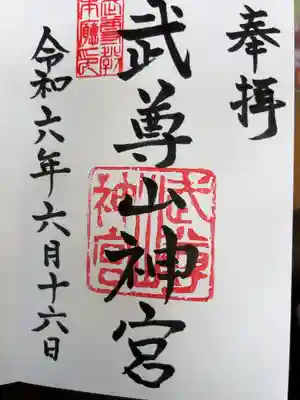 奉拝
武尊山神宮
武尊山神宮
令和六年六月十六日